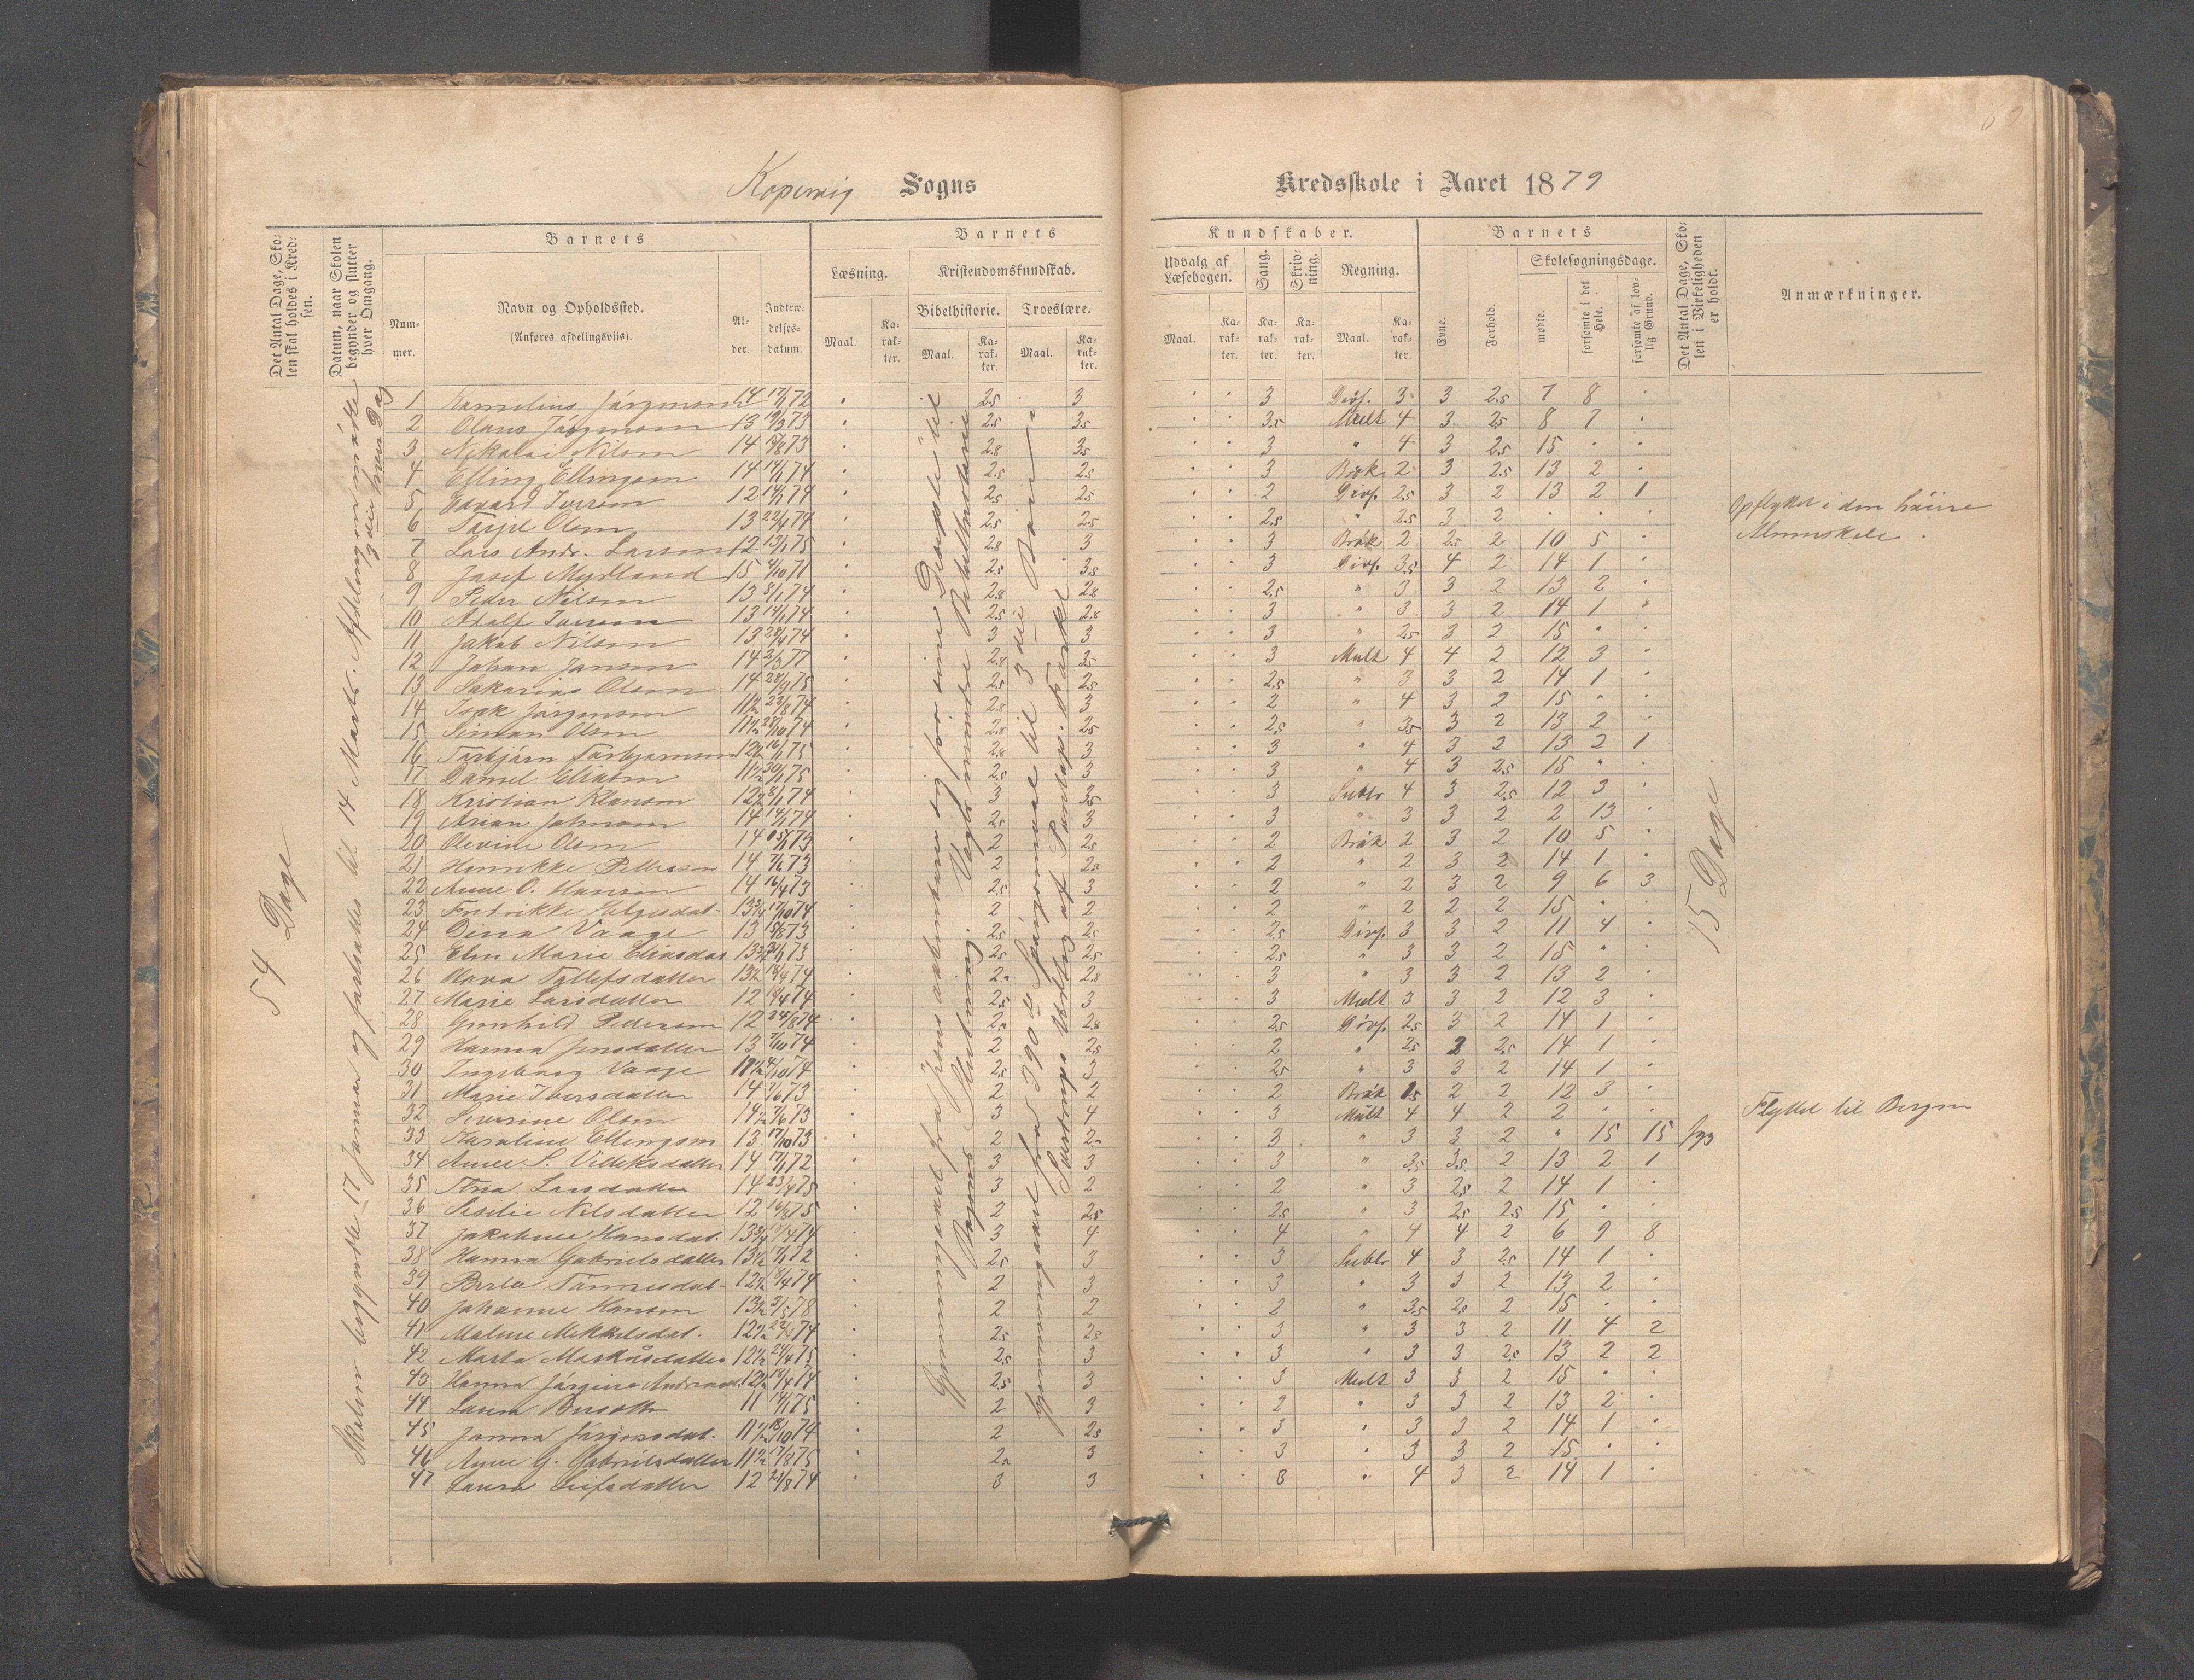 62
Kopervig Sogns
Kredsskole i Aaret 1879
Det Antal Dage, Skolen skal holdes i Kredsen.
Datum, naar Skolen begynder og slutter hver Omgang.
Barnets
Barnets
Kundskaber.
Barnets
Nummer.
Navn og Opholdssted.
(Anføres afdelingsviis).
Alder.
Indtrædelsesdatum.
Læsning.
Kristendomskundskab.
Bibelhistorie.
Troeslære.
Maal.
Karakter.
Maal.
Karakter.
Maal.
Karakter.
Udvalg af Læsebogen.
Sang.
Skrivning.
Regning.
Maal.
Karakter.
Karakter.
Karakter.
Maal.
Karakter.
Evne.
Forhold.
Skolesøgningsdage.
mødte.
forsømte i det Hele.
forsømte af lovlig Grund.
Det Antal Dage, Skolen i Virkeligheden er holdt.
Anmærkninger.
54 Dage
Skolen begyndte 17 Januar og fortsattes til 14 Marts. Afdelingen mødte
3die hver Dag
15 Dage.
1 Kornelius Jørgensen 14 17/1 72 2.5 3 3 Divs. 3 3 2.5 7 8
2 Olaus Jørgensen 13 19/3 73 2.5 3.5 3.5 Mult 4 3 2.5 8 7
3 Nikolai Nilsen 14 2.8 3.5 3 " 4 3 2.5 15
4 Elling Ellingsen 14 14/1 74 2.5 2.5 3 Brøk 2 3 2.5 13 2
5 Edvard Iversen 12 14/1 74 2.5 2.5 2 Divs. 2.5 3 2 13 2 1
6 Tarjil Olsen 13 22/1 74 2.5 2.5 2.5 " 2.5 3 2
Opflyttet i den höiere
Almueskole.
7 Lars Andr. Larsen 12 13/1 75 2.8 3 3 Brøk 2 2.5 2 10 5
8 Josef Mydland 15 4/10 71 2.5 3.5 3 Divs. 3.5 4 2 14 1
9 Peder Nilsen 13 8/1 74 2.8 2.8 2.5 " 3 3 2 13 2
10 Adolf Iversen 13 14/1 74 2.5 2.8 3 " 3 3 2 14 1
11 Jakob Nilsen 13 28/4 74 3 3 3 " 2.5 3 2 15
12 Johan Jansen 14 2/3 77 2.8 3.5 3 Mult 4 4 2 12 3
13 Sakarias Olsen 14 28/9 75 2.5 2.5 2.5 " 3 3 2 14 1
14 Isak Jørgensen 11 1/2 22/8 74 2.8 3 2 " 4 3 2 15
15 Simon Olsen 11 1/2 28/10 74 2.8 2.5 2.5 " 3.5 3 2 13 2
16 Torbjørn Torbjørnsen 12 1/2 16/1 75 2.8 3 3 " 4 3 2 13 2 1
17 Daniel Eliasen 11 1/2 30/1 75 2.5 3 3 " 4 3 2.5 15
18 Kristian Klausen 12 1/2 8/1 74 3 3.5 3 Subtr 4 3 2.5 12 3
19 Arian Johnsen 14 14/1 74 2.5 3 3 " 3 3 2 2 13
20 Olevine Olsen 14 73 2 2.5 2 Brøk 2 3 2 10 5
21 Henrikke Pettersen 14 7/6 73 2 2 " 2 3 2 14 1
22 Anne O. Hansen 14 16/4 73 2.5 3 2 " 2 3 2 9 6 3
23 Fredrikke Helgesdat. 13 3/4 17/10 74 2 2 2 " 2 2 2 15
24 Dina Vaage 13 15/8 73 2.5 2.5 2.5 Divs. 3 3 2 11 4
25 Elen Marie Eliasdat 73 2.5 2.5 2.5 " 3 3 2 15
26 Olava Tollefsdatter 13 1/2 18/4 74 2.8 3 " 3 3 2 13 2
27 Marie Larsdatter 12 10/4 74 2.5 3 3 Mult 3 3 2 12 3
28 Gunhild Pedersen 12 24/8 74 2.8 2.5 Divs. 2.5 3 2 14 1
29 Hanna Jensdatter 13 7/10 74 2 2.5 2 " 2.5 3 2.5 14 1
30 Ingeborg Vaage 4/10 74 2.5 3 2.5 " 3 3 2 14 1
31 Marie Iversdatter 14 7/6 73 2 2 2 Brøk 2 2 12 3
32 Severine Olsen 14 1/2 7/6 73 3 4 3 Mult 4 4 2 2
Flyttet til Bergen
33 Karoline Ellingsen 13 17/10 73 2 3 " 3 3 2 " 15 15 syg
34 Anne S. Villiksdatter 14 17/1 72 3 3 3 " 3.5 3.5 2 13 2 1
35 Stina Larsdatter 14 23/4 75 3 2 2 " 3 2.5 2 14 1
36 Sesilie Nilsdatter 12 16/8 75 2 2.5 2.5 " 3 2.5 2.5 15
37 Jakobine Hansdat. 13 3/4 74 3 4 4 " 4 4 2 6 9 8
38 Hanna Gabrielsdatter 13 1/2 17/1 72 2.5 3 3 Subtr 4 3 2.5 14 1
39 Berta Tønnesdat. 12 1/2 18/4 74 2 3 3 " 3 3 2 13 2
40 Johanne Hansen 13 1/2 3/5 78 2 2 2 " 3.5 2.8 2 15
41 Malene Mikkelsdat. 12 1/2 74 2.5 2.5 3 " 3 3 2 11 4 2
42 Marta Markusdatter 12 1/2 24/4 75 2.5 3 3 " 3 3 2.5 13 2 2
43 Hanna Jørgine 12 1/2 18/4 74 2.5 3 3 Mult 3 3 2 15
44 Laura 11 14/1 75 2 3 2 " 3 3 2 13 2
45 Janna Jørgensdat. 11 1/2 18/10 74 2 2.8 3 " 3 3 2 14 1
46 Anne G. Gabrielsdatter 11 1/2 17/8 75 3 3 " 3 3 2 15
47 Laura Leifsdatter 12 23/8 74 3 3 3 " 4 3 2 14 1
Gjennemgaaet fra Jesu aabenbarer sig for sine Disciple til
Bogens Slutning. Vogts mindre Bibelhistorie
Gjennemgaaet fra 390de Spørgsmaal til 3die Bøn
Sverdrups Udtog af Pontop. Forkl.